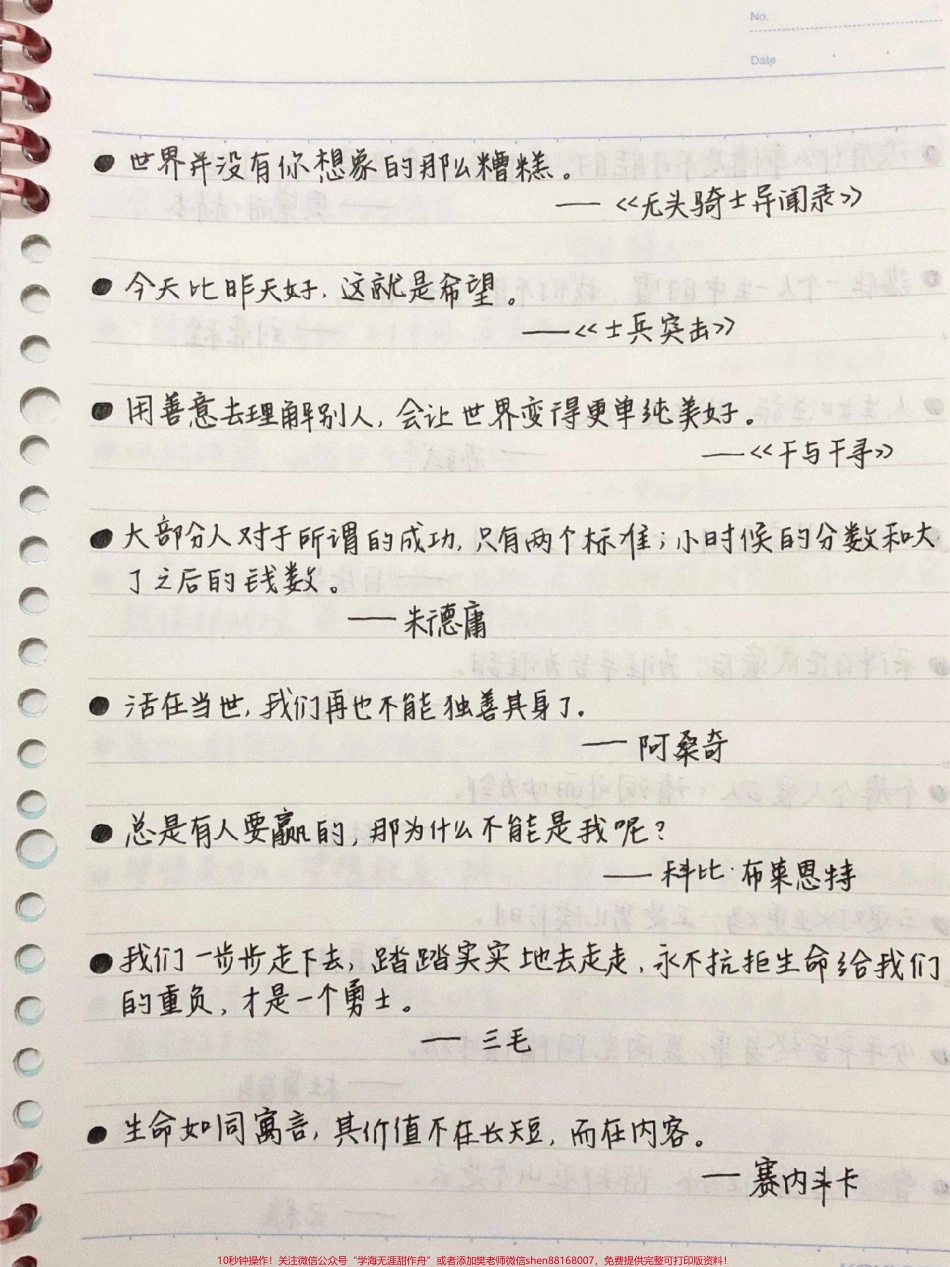 No.
Date
● 世界并没有你想象的那么糟糕。
——《无头骑士异闻录》
● 今天比昨天好，这就是希望。
——《士兵突击》
● 用善意去理解别人，会让世界变得更单纯美好。
——《千与千寻》
● 大部分人对于所谓的成功，只有两个标准；小时候的分数和大
了之后的钱数。
——朱德庸
● 活在当世，我们再也不能独善其身了。
——阿桑奇
● 总是有人要赢的，那为什么不能是我呢？
——科比·布莱恩特
● 我们一步步走下去，踏踏实实地去走走，永不抗拒生命给我们
的重负，才是一个勇士。
——三毛
● 生命如同寓言，其价值不在长短，而在内容。
——赛内斗卡
10秒钟操作！关注微信公众号“学海无涯甜作舟”或者添加樊老师微信shen88168007，免费提供完整可打印版资料！